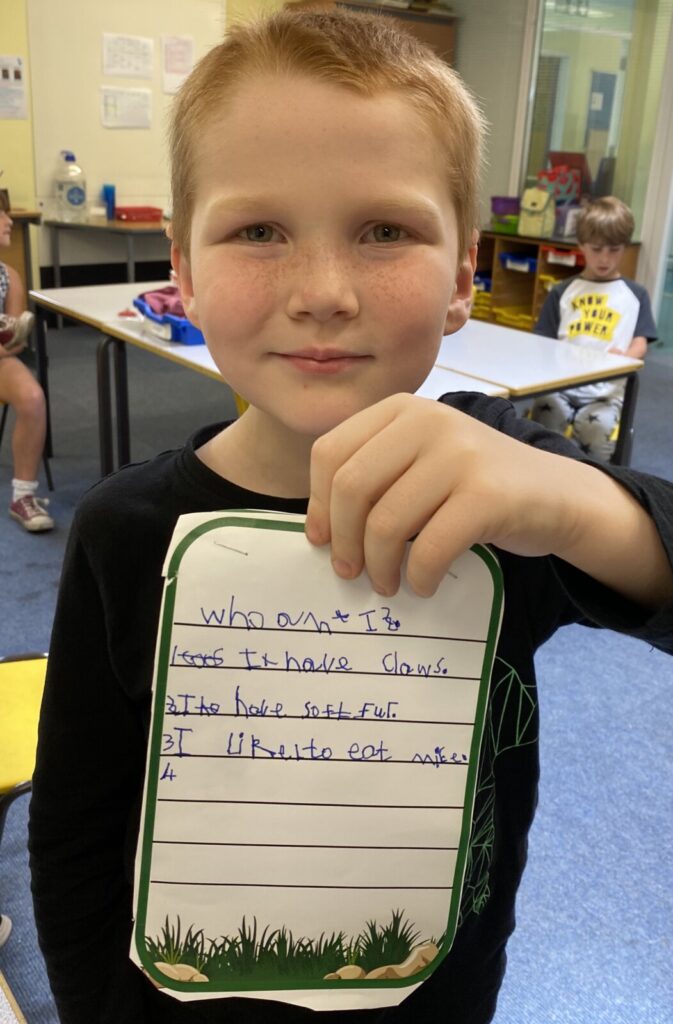 who am I?
1 I have claws.
2 I have soft fur.
3 I like to eat mice.
4
KNOW
YOUR
POWER